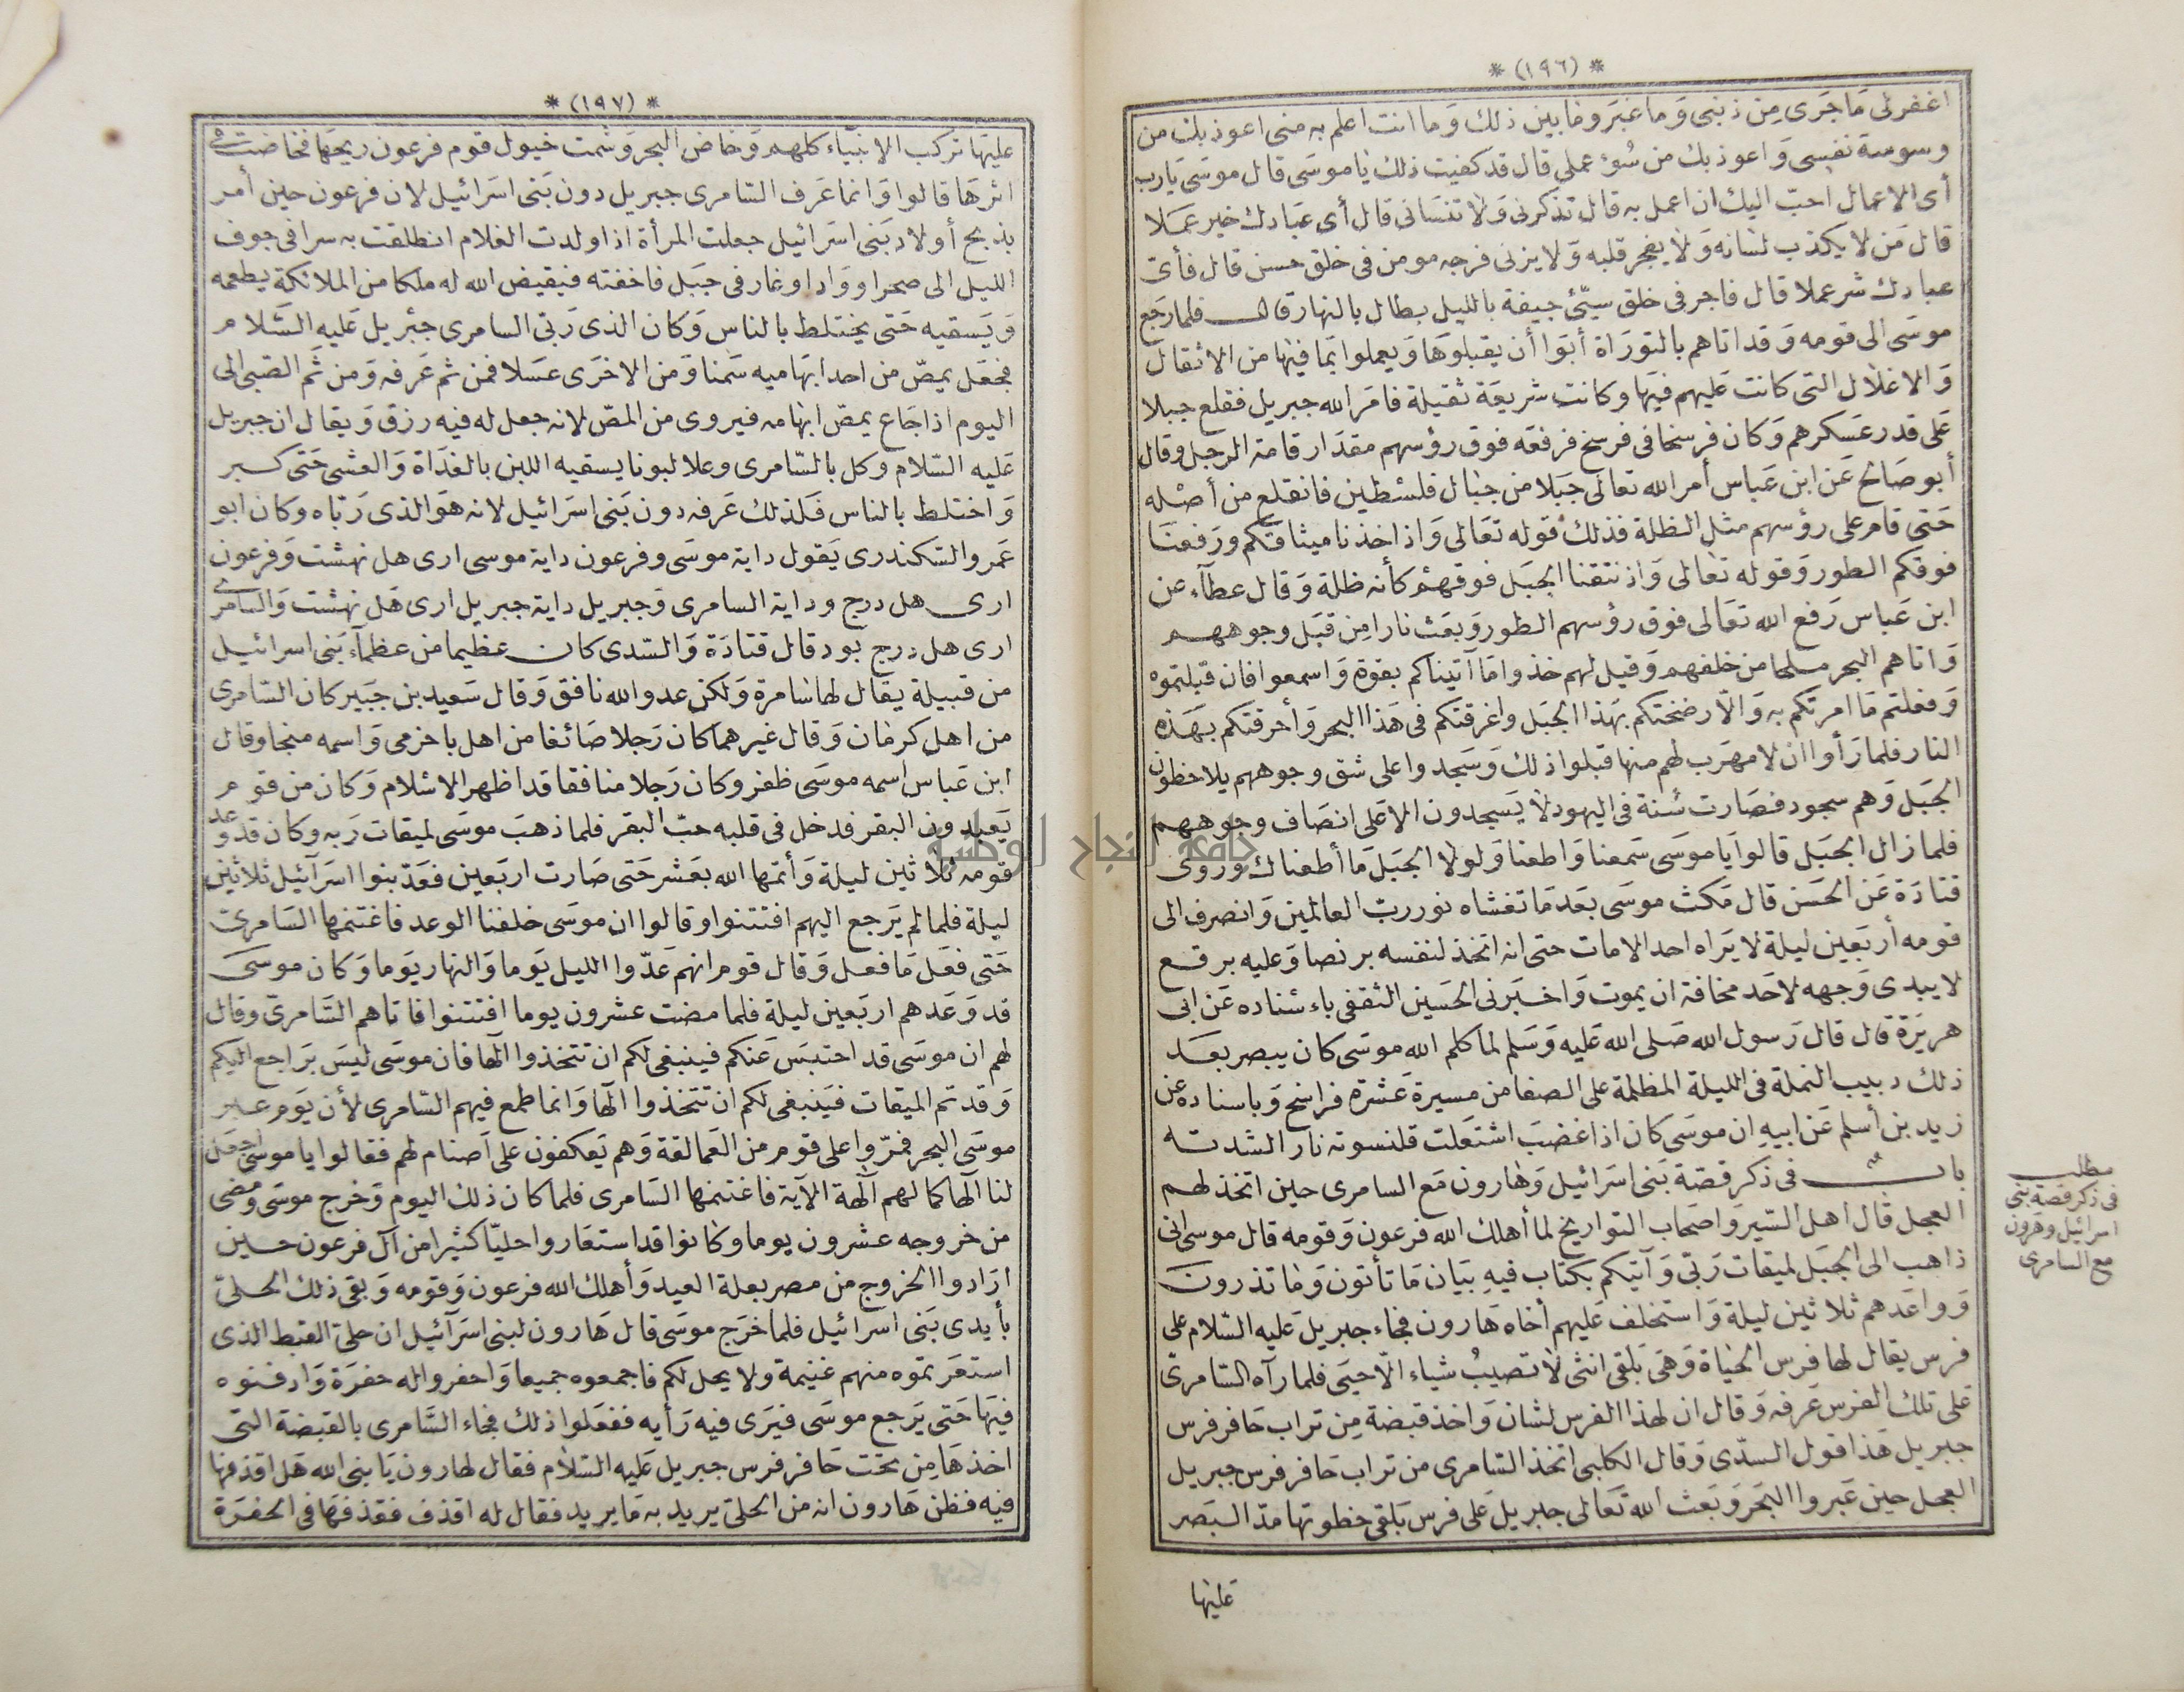 * (١٩٦) *
اغفرلى مَا جَرى مِن ذنبى وَما غبَر وما بين ذلك وَما انت اعلم به منى اعوذ بك من
وسوسة نفسى وَاعوذ بك من سُوء عملى قال قد كفيت ذلك يا موسَى قال موسَى يَارب
أى الاعمال احبّ اليك ان اعمل به قال تذكرنى وَلا تنسَانى قال أى عبَادك خير عمَلا
قال مَن لا يكذب لسانه وَلا يفجر قلبه وَلا يزنى فرجه مومن فى خلق حسن قال فأىّ
عبادك شر عملا قال فاجر فى خلق سيّئ جيفة بالليل بطال بالنهار قال فلما رجَع
موسَى الى قومه وَقد اتاهم بالتورَاة أبَوا أن يقبلوهَا وَيعملوا بمَا فيها من الاثقال
وَالاغلال التى كانت عَليهم فيهَا وكانت شريعَة ثقيلة فامَر الله جبريل فقلع جبلا
عَلى قدر عَسكرهم وَكان فرسخا فى فرسخ فرفعَه فوق رؤسهم مقدَار قامة الرجل وقال
أبو صَالح عَن ابن عَباس أمر الله تعالى جَبَلا من جبَال فلسْطين فانقلع من أصْله
حَتى قام على رؤسهم مثل الظلة فذلك قوله تعَالى وَاذ اخذنا ميثاقكم ورَفعنَا
فوقكم الطور وَقوله تعَالى وَاذ نتقنا الجبَل فوقهمْ كأنه ظلة وَقال عطآء عن
ابن عَباس رَفع الله تعَالى فوق رؤسهم الطور وَبعَث نارا مِن قبَل وجوههم
وَاتاهم البحر ملحا من خلفهم وَقيل لهم خذوا مَا آتيناكم بقوة وَاسمعوا فان قبلتموه
وَفعلتم مَا امرتكم به وَالّا رضختكم بهَذا الجبَل واغرقتكم فى هَذا البحر وَأحرقتكم بهَذه
النار فلما رَأوا ان لا مهرَب لهم منها قبلوا ذلك وَسَجدوا على شق وجوههم يلاحظون
الجبَل وَهم سجود فصَارت سُنة فى اليهود لا يَسجدون الا عَلى انصَاف وجوههم
فلما زال الجبَل قالوا يَا موسَى سَمعنا وَاطعنا وَلولا الجبَل مَا أطعناك وروَى
قتادَة عَن الحسَن قال مَكث موسَى بعَد مَا تغشاه نور ربّ العالمين وَانصرف الى
قومه أربَعين ليلة لا يَراه احد الامات حتى انه اتخذ لنفسه برنصا وَعليه برقع
لا يبدى وَجهه لاحَد مخافة ان يموت وَاخبَرنى الحسَين الثقفى باءسْناده عَن ابى
هريَرة قال قال رَسول الله صَلى الله عَليه وَسَلم لما كلم الله موسَى كان يبصر بعَد
ذلك دبيب النملة فى الليلة المظلمة على الصفا من مسيرة عَشرَة فراسخ وَباسناده عن
زيد بن أسلم عَن ابيه ان موسَى كان اذا غضبَ اشتعَلت قلنسوته نار الشدته
باب فى ذكر قصّة بَنى اسرَائيل وَهارون مَع السامرى حين اتخذ لهم
العجل قال اهل السّير وَاصحَاب التواريخ لما أهلك الله فرعون وَقومه قال موسَى انى
ذاهب الى الجبَل لميقات رَبّى وَآتيكم بكتاب فيهِ بيَان مَا تأتون وَما تذرون
وَواعَدهم ثلاثين ليلة وَاستخلف عَليهم أخاه هَارون فجَاء جبريل عَليه السّلام على
فرس يقال لها فرس الحيَاة وَهى بَلقى انثى لا تصيبُ شياء الّا حيَى فلما رآه السّامرىّ
عَلى تلك الفرَس عَرفه وَقال ان لهذا الفرس لشان وَاخذ قبضة مِن تراب حَافر فرس
جبريل هَذا قول السدّى وَقال الكلبى اتخذ السّامرى من تراب حَافر فرس جبريل
العجل حين عَبروا البحَر وَبَعَث الله تعَالى جبريل عَلى فرس بَلقى خطوتها مدّ البَصر
عَليهَا
مطلب
فى ذكر قصة بنى
اسرائيل وهَرون
مع السامرى
* (١٩٧) *
عليهَا تركب الانبيَاء كلهم وَخاض البحر وَشمت خيول قوم فرعون ريحهَا فخاضت فى
اثرهَا قالوا وَانما عَرف السّامرى جبريل دون بَنى اسرَائيل لان فرعون حين أمر
بذبح أولاد بَنى اسرَائيل جعلت المرأة اذا ولدت الغلام انطلقت به سرا فى جوف
الليل الى صحرا وَوادا وغار فى جبَل فاخفته فيقيض الله له ملكا من الملائكة يطعمه
وَيَسقيه حَتى يختلط بالناس وَكان الذى رَبّى السامرى جبْريل عَليه السَّلام
فجعَل يمصّ من احد ابهَاميه سَمنا وَمن الاخرَى عسَلا فمن ثم عَرفه وَمن ثَم الصّبى الى
اليوم اذا جَاع يمصّ ابهَامه فيروى من المصّ لانه جعل له فيه رزق وَيقال ان جبريل
عَليه السّلام وكل بالسّامرى وعلا لبونا يسقيه اللبن بالغدَاة وَالعشى حَتى كبر
وَاختلط بالناس فَلذلك عَرفه دون بَنى اسرَائيل لانه هوَ الذى رَبّاه وَكان ابو
عَمرو السّكندرى يَقول داية موسَى وفرعون داية موسى ارى هل نهشت وَفرعون
ارى هل درج وداية السامرى وَجبريل داية جبريل ارى هَل نهشت وَالسامرى
ارى هل درج بود قال قتادَة وَالسّدى كان عظيما من عظمآء بَنى اسرائيل
من قبيلة يقال لها سَامرة وَلكن عدو الله نافق وَقال سَعيد بن جبَير كان السّامرى
من اهل كرمان وَقال غيرهما كان رَجلا صَائغا من اهل باخرمى وَاسمه منجا وقال
ابن عَباس اسمه موسَى ظفر وكان رَجلا منافقا قد اظهر الاسْلام وَكان من قوم
يَعبدون البقر فدخل فى قلبه حبّ البقر فلما ذهبَ موسَى لميقات رَبه وكان قد وعد
قومه ثلاثين ليلة وَأتمّها الله بعَشر حَتى صَارت اربَعين فعَدّ بنوا اسرَآئيل ثلاثين
ليلة فلما لم يَرجع اليهم افتتنوا وقالوا ان موسَى خلفنا الوعد فاغتنمها السّامرىّ
حَتى فعَل مَا فعل وَقال قوم انهم عَدّوا الليل يَوما وَالنهار يَوما وَكان موسَى
قد وَعَدهم اربَعين ليلة فلما مضت عشرون يوما افتتنوا فاتاهم السَّامرىّ وقال
لهم ان موسَى قد احتبَس عَنكم فينبغى لكم ان تتخذوا الها فان موسَى ليسَ برَاجع اليكم
وَقد تم الميقات فيَنبغى لكم ان تتخذوا الهَا وَانما طمع فيهم السّامرى لأن يَوم عبر
موسَى البحر فمرّوا على قوم من العَمالقة وَهم يَعكفون على أصنام لهم فقالوا يا موسى اجعل
لنا الها كما لهم آلهة الآية فاغتنمها السَّامرى فلما كان ذلك اليوم وَخرج موسَى ومضى
من خروجه عشرون يوما وكانوا قد استعَاروا حليّا كثيرا من آل فرعون حين
ارَادوا الخروج من مصر بعلة العيد وَأهلك الله فرعون وَقومه وَبقى ذلك الحلىّ
بأيدى بَنى اسرَائيل فلما خرَج موسَى قال هَارون لبنى اسرَآئيل ان حلىّ القبط الذى
استعرَتموه منهم غنيمة ولا يحل لكم فاجمعوه جميعا وَاحفروا له حفرَة وَادفنوه
فيهَا حَتى يَرجع موسَى فيَرى فيه رَأيه ففعَلوا ذلك فجاء السَّامرى بالقبضة التى
اخذهَا مِن تحَت حَافر فرس جبريل عَليه السّلام فقال لهارون يَا بنى الله هَل اقذفها
فيه فظن هَارون انه من الحلىّ يريد به مَا يريد فقال له اقذف فقذفهَا فى الحفرَة
جامعة النجاح الوطنية